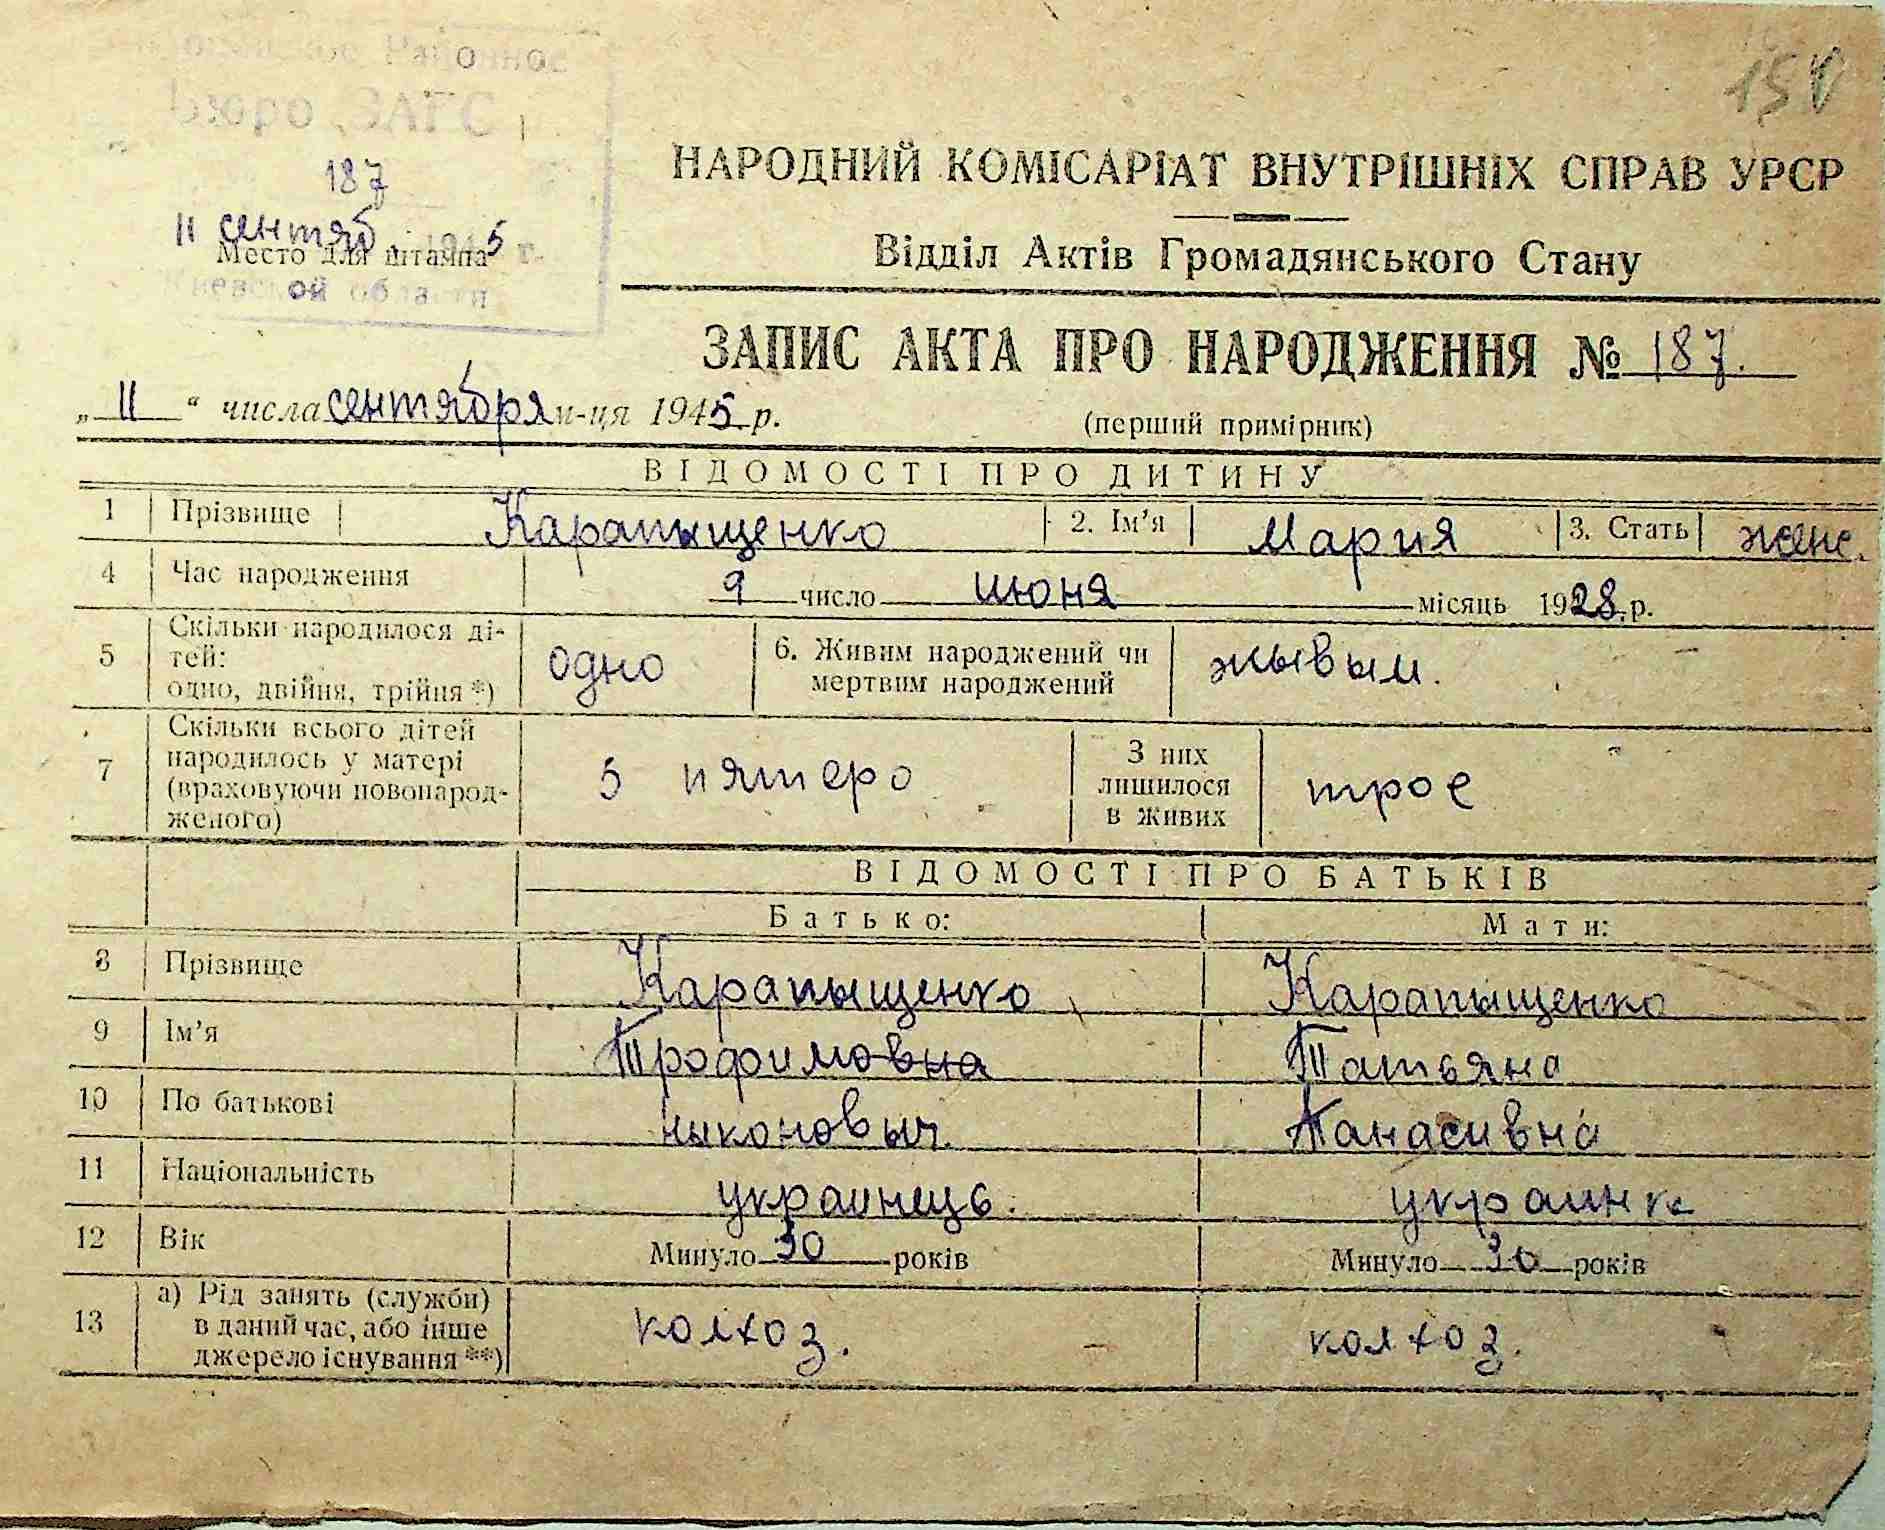 Районное
Бюро ЗАГС
187
11 сентяб. 1945 г.
Место для штампа
Киевской области
НАРОДНИЙ КОМІСАРІАТ ВНУТРІШНІХ СПРАВ УРСР
Відділ Актів Громадянського Стану
ЗАПИС АКТА ПРО НАРОДЖЕННЯ № 187.
„ 11 “ числа сентября м-ця 1945 р.
(перший примірник)
ВІДОМОСТІ ПРО ДИТИНУ
1 Прізвище Карапыщенко 2. Ім’я Мария 3. Стать женс.
4 Час народження 9 число июня місяць 1928 р.
5 Скільки народилося ді-
тей:
одно, двійня, трійня *) одно 6. Живим народжений чи
мертвим народжений жывым.
7 Скільки всього дітей
народилось у матері
(враховуючи новонарод-
женого) 5 пятеро З них
лишилося
в живих трое
ВІДОМОСТІ ПРО БАТЬКІВ
Батько: Мати:
8 Прізвище Карапыщенко Карапыщенко
9 Ім’я Трофимовна Татьяна
10 По батькові ныконовыч. Панасивна
11 Національність украинець. украинка
12 Вік Минуло 30 років Минуло 30 років
13 а) Рід занять (служби)
в даний час, або інше
джерело існування **) колхоз. колхоз.